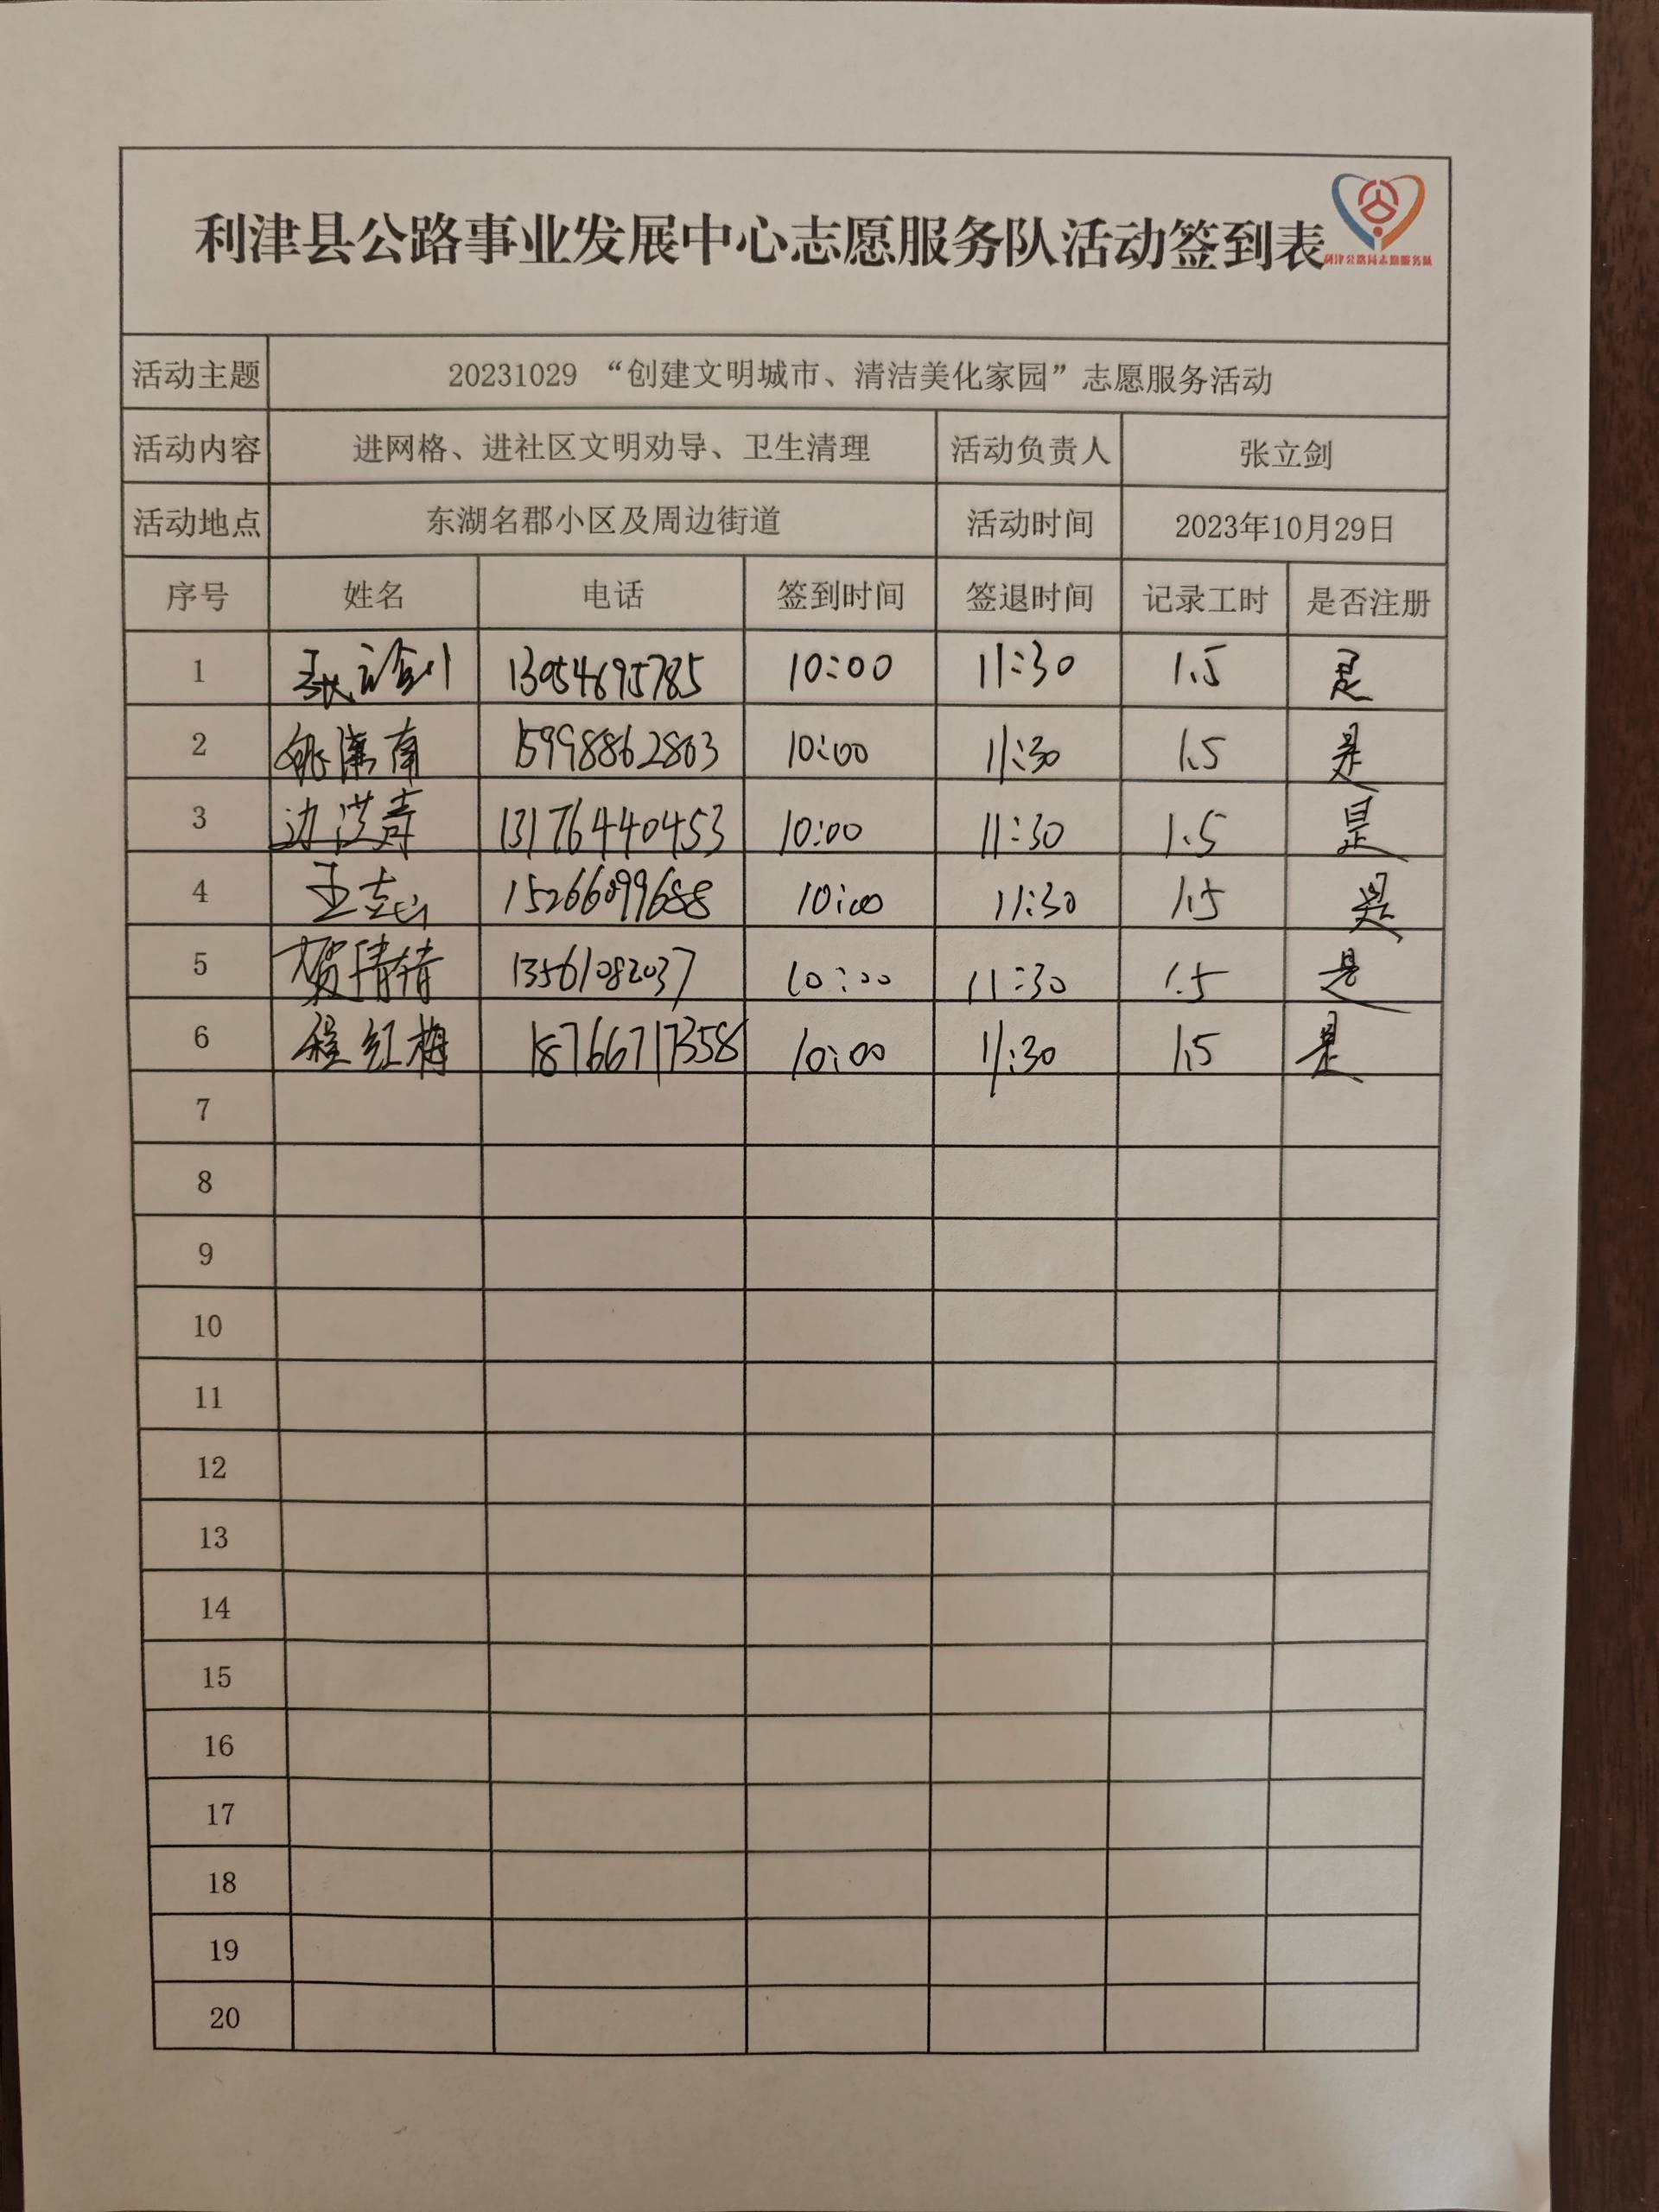 利津县公路事业发展中心志愿服务队活动签到表
利津公路局志愿服务队
活动主题 20231029 “创建文明城市、清洁美化家园”志愿服务活动
活动内容 进网格、进社区文明劝导、卫生清理 活动负责人 张立剑
活动地点 东湖名郡小区及周边街道 活动时间 2023年10月29日
序号 姓名 电话 签到时间 签退时间 记录工时 是否注册
1 张立剑 13054695785 10:00 11:30 1.5 是
2 15998862803 10:00 11:30 1.5 是
3 13176440453 10:00 11:30 1.5 是
4 15266099688 10:00 11:30 1.5 是
5 贺倩倩 13561082037 10:00 11:30 1.5 是
6 程红梅 18766717358 10:00 11:30 1.5 是
7
8
9
10
11
12
13
14
15
16
17
18
19
20